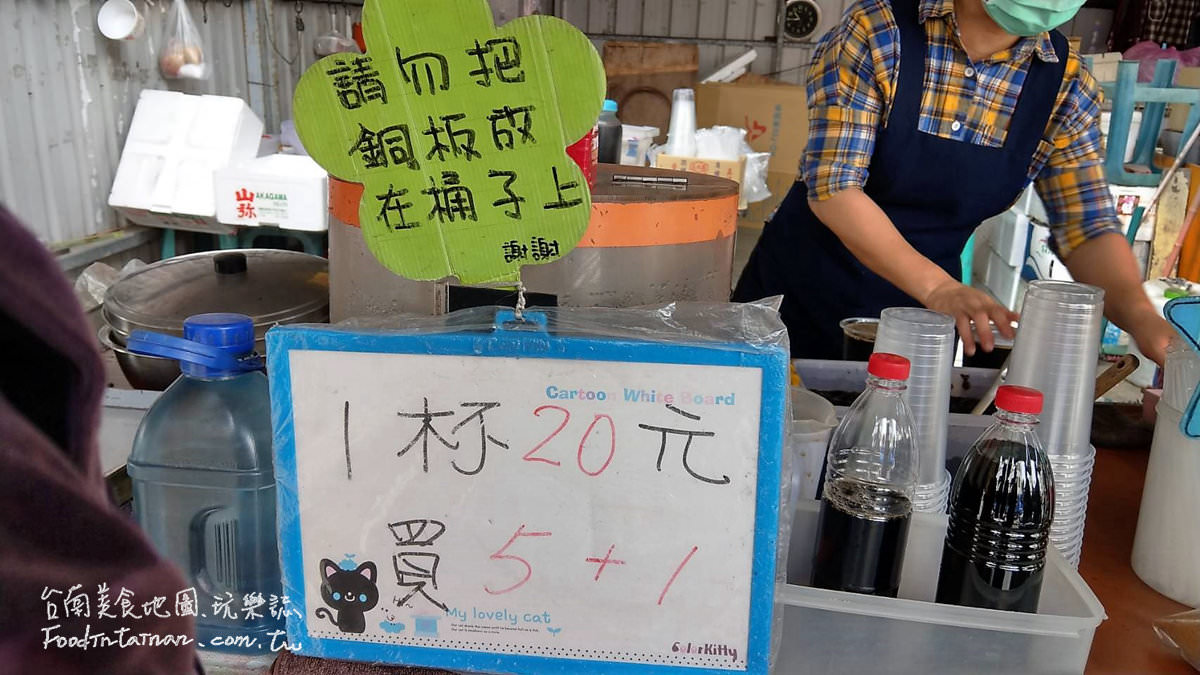 請勿把
銅板放
在桶子上
謝謝
山弥
AKAGAWA
Cartoo White Board
1杯20元
買5+1
My lovely cat
ColorKitty
台南美食地圖.玩樂誌
FoodTntainan.com.tw